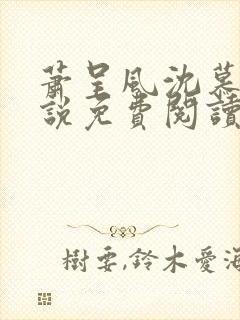 蕭呈風沈慕
說免費閱讀
樹要,鈴木愛海